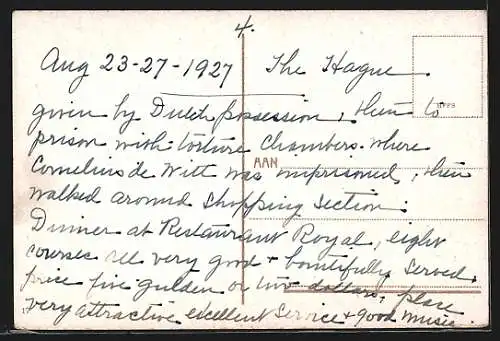 4.
Aug 23-27-1927 The Hague
given by Dutch possession, then to
prison with torture chambers where
Cornelius de Witt was imprisoned, then
AAN
walked around shopping section.
Dinner at Restaurant Royal, eight
courses all very good + bountifully served.
price five gulden or two dollars, place
very attractive excellent service + good music.